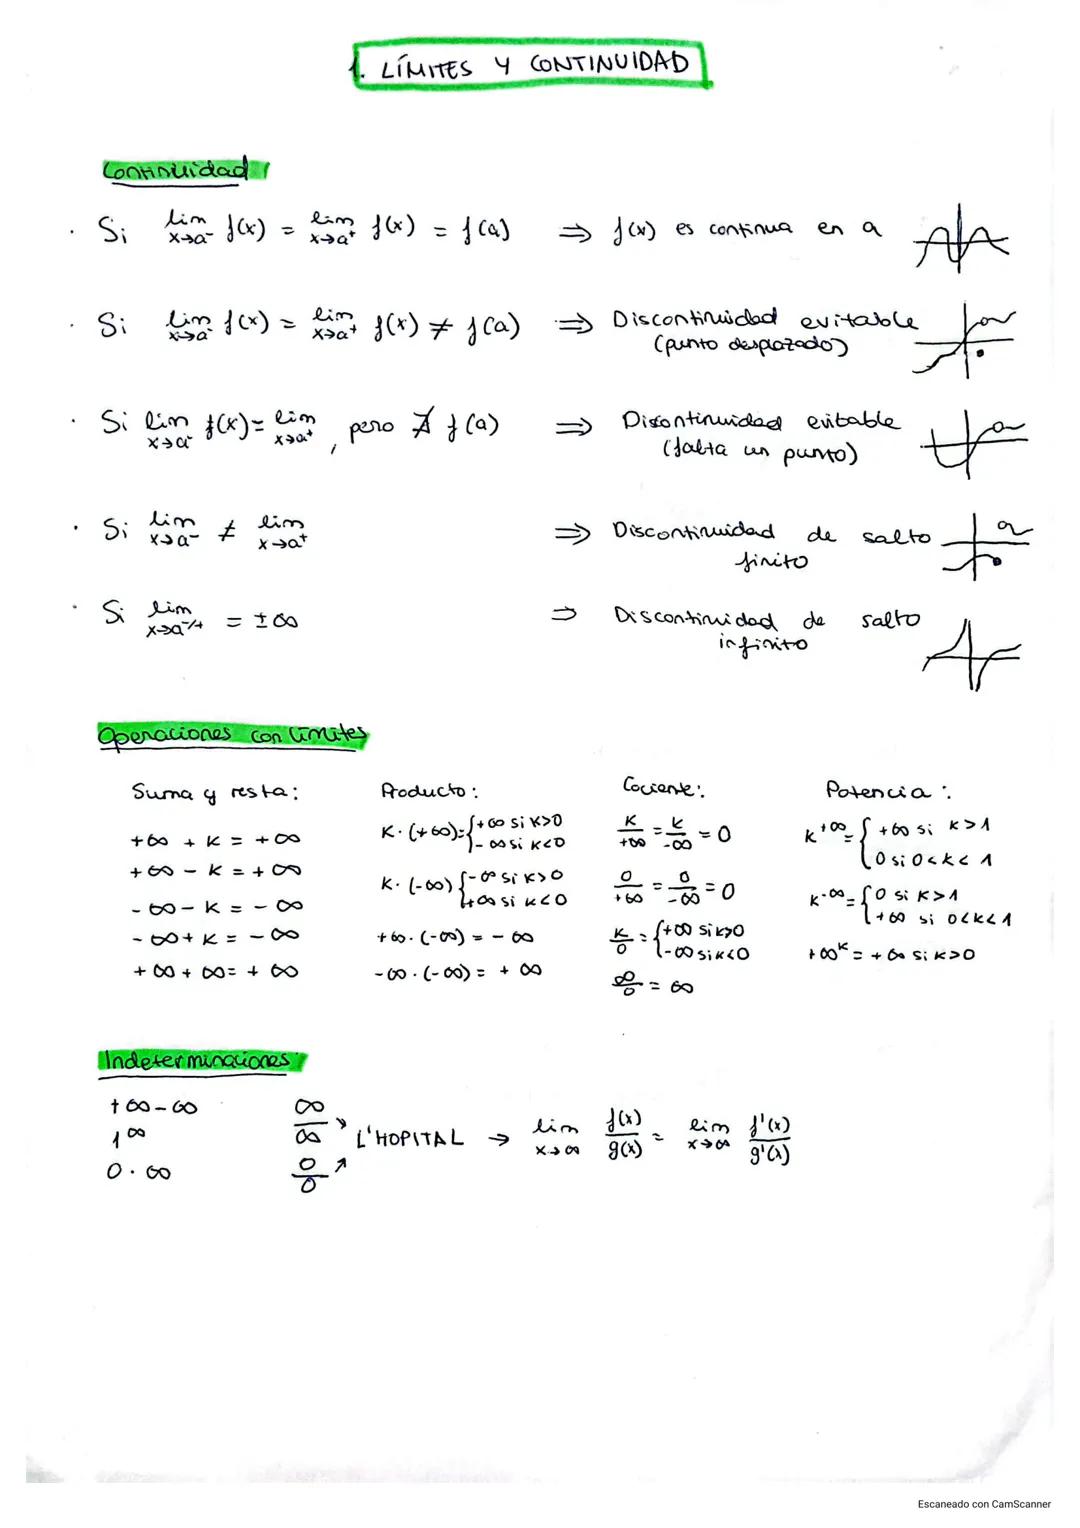 1. LÍMITES Y CONTINUIDAD
Continuidad
· Si lim x→a⁻ f(x) = lim x→a⁺ f(x) = f(a) ⇒ f(x) es continua en a
· Si lim x→a⁻ f(x) = lim x→a⁺ f(x) ≠ f(a) ⇒ Discontinuidad evitable
(punto desplazado)
· Si lim x→a⁻ f(x) = lim x→a⁺, pero ∄ f(a) ⇒ Discontinuidad evitable
(falta un punto)
· Si lim x→a⁻ ≠ lim x→a⁺ ⇒ Discontinuidad de salto
finito
· Si lim x→a⁻/⁺ = ±∞ ⇒ Discontinuidad de salto
infinito
Operaciones con límites
Suma y resta:
+∞ + K = +∞
+∞ - K = +∞
-∞ - K = -∞
-∞ + K = -∞
+∞ + ∞ = +∞
Producto:
K·(+∞) = { +∞ si K>0
-∞ si K<0
K·(-∞) { -∞ si K>0
+∞ si K<0
+∞·(-∞) = -∞
-∞·(-∞) = +∞
Cociente:
K/+∞ = K/-∞ = 0
0/+∞ = 0/-∞ = 0
K/0 = { +∞ si K>0
-∞ si K<0
∞/0 = ∞
Potencia:
K^+∞ = { +∞ si K>1
0 si 0<K<1
K^-∞ = { 0 si K>1
+∞ si 0<K<1
+∞^K = +∞ si K>0
Indeterminaciones
+∞-∞
1^∞
0·∞
∞/∞
0/0
L'HOPITAL → lim x→∞ f(x)/g(x) = lim x→∞ f'(x)/g'(x)
Escaneado con CamScanner